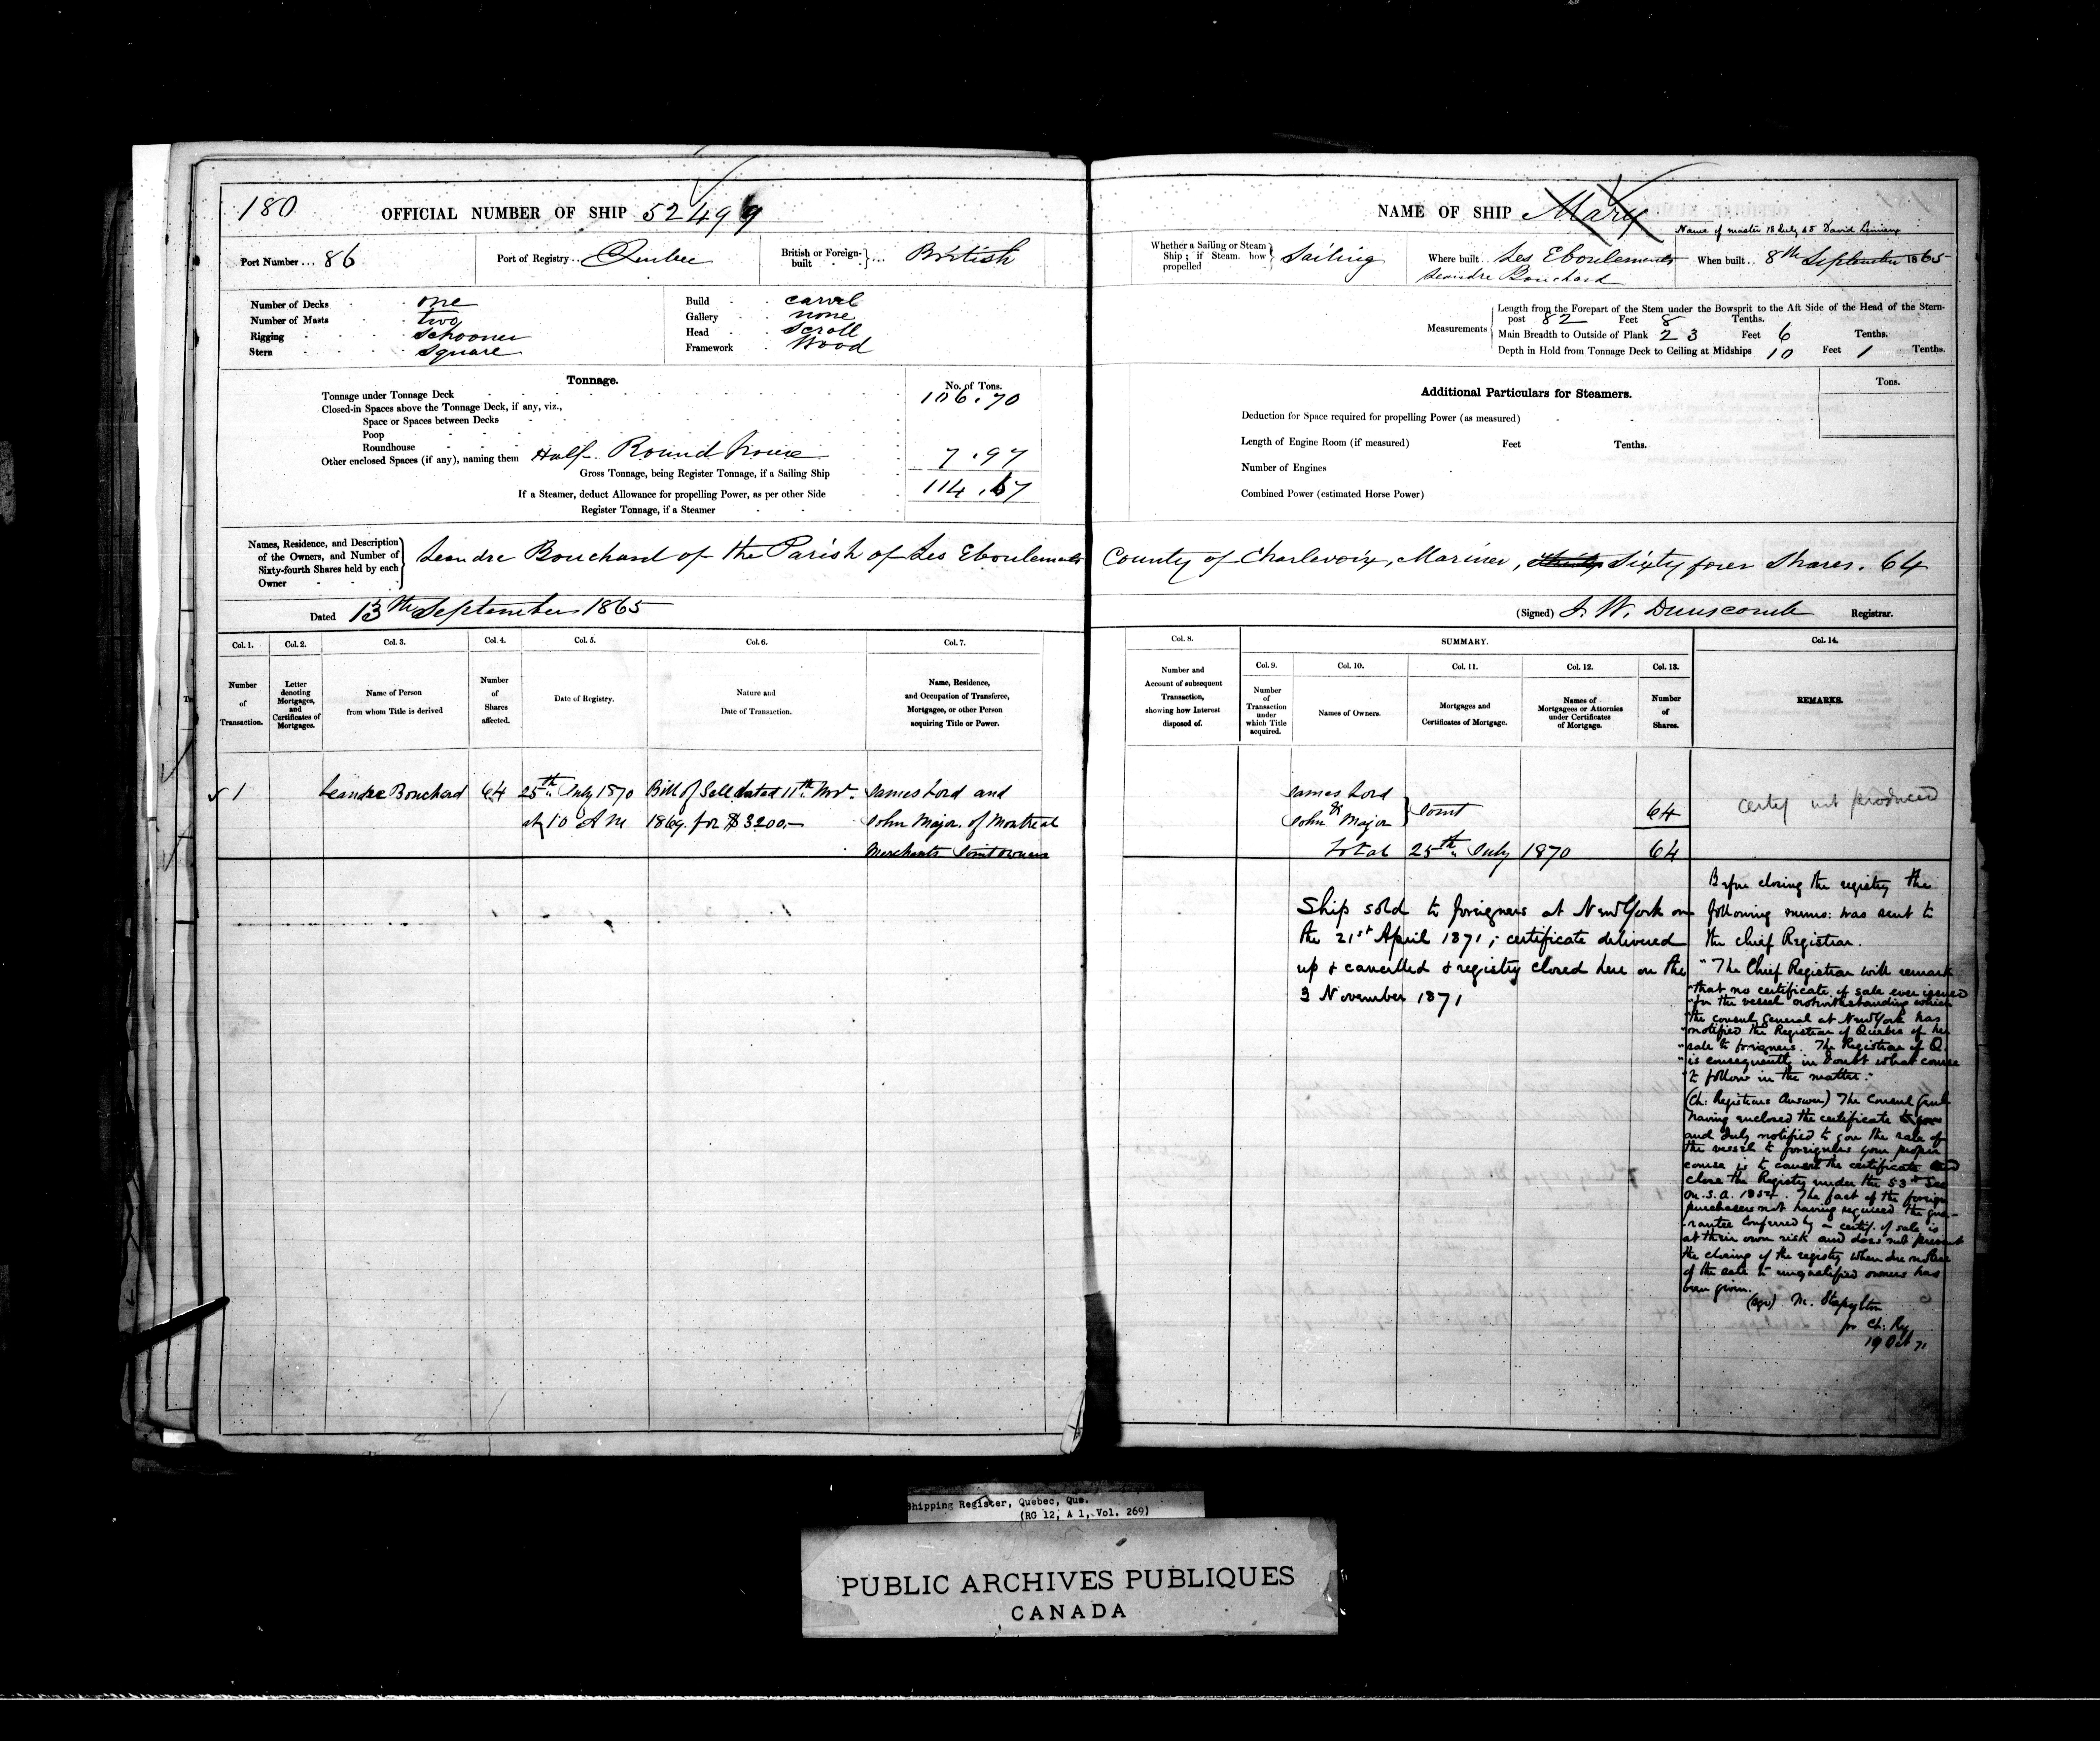 180
OFFICIAL NUMBER OF SHIP 52499
Port Number... 86
Port of Registry.. Quebec
British or Foreign-built } ... British
Number of Decks - one
Number of Masts - two
Rigging - schooner
Stern - square
Build - carvel
Gallery - none
Head - scroll
Framework - Wood
Tonnage.
No. of Tons.
Tonnage under Tonnage Deck 106.70
Closed-in Spaces above the Tonnage Deck, if any, viz.,
Space or Spaces between Decks
Poop
Roundhouse
Other enclosed Spaces (if any), naming them Half Round house 7.97
Gross Tonnage, being Register Tonnage, if a Sailing Ship 114.67
If a Steamer, deduct Allowance for propelling Power, as per other Side
Register Tonnage, if a Steamer
Names, Residence, and Description of the Owners, and Number of Sixty-fourth Shares held by each Owner } Leandre Bouchard of the Parish of Les Eboulements
Dated 13th September 1865
Col. 1. Col. 2. Col. 3. Col. 4. Col. 5. Col. 6. Col. 7.
Number of Transaction.
Letter denoting Mortgages, and Certificates of Mortgages.
Name of Person from whom Title is derived
Number of Shares affected.
Date of Registry.
Nature and Date of Transaction.
Name, Residence, and Occupation of Transferee, Mortgagee, or other Person acquiring Title or Power.
1 Leandre Bouchard 64 25th July 1870 Bill of Sale dated 11th Novr. James Lord and
at 10 A M 1869. for $3200.- John Major. of Montreal
Merchants Joint owners
NAME OF SHIP Mary
Name of master 18 July 68 David Lemieux
Whether a Sailing or Steam Ship; if Steam, how propelled } Sailing
Where built.. Les Eboulements
Leandre Bouchard
When built.. 8th September 1865
Measurements
Length from the Forepart of the Stem under the Bowsprit to the Aft Side of the Head of the Stern-
post 82 Feet 8 Tenths.
Main Breadth to Outside of Plank 23 Feet 6 Tenths.
Depth in Hold from Tonnage Deck to Ceiling at Midships 10 Feet 1 Tenths.
Additional Particulars for Steamers.
Tons.
Deduction for Space required for propelling Power (as measured)
Length of Engine Room (if measured) Feet Tenths.
Number of Engines
Combined Power (estimated Horse Power)
County of Charlevoix, Mariner, Sixty four Shares. 64
(Signed) J. W. Dunscomb Registrar.
Col. 8. SUMMARY. Col. 14.
Col. 9. Col. 10. Col. 11. Col. 12. Col. 13.
Number and Account of subsequent Transaction, showing how Interest disposed of.
Number of Transaction under which Title acquired.
Names of Owners.
Mortgages and Certificates of Mortgage.
Names of Mortgagees or Attornies under Certificates of Mortgage.
Number of Shares.
REMARKS.
James Lord
&
John Major } Joint 64
Total 25th July 1870 64
certif not produced
Ship sold to foreigners at New York on
the 21st April 1871; certificate delivered
up & cancelled & registry closed here on the
3 November 1871
Before closing the registry the
following memo: was sent to
the chief Registrar.
"The Chief Registrar will remark
"that no certificate of sale ever issued
"for the vessel notwithstanding which
"the consul General at New York has
"notified the Registrar of Quebec of her
"sale to foreigners. The Registrar of Q.
"is consequently in doubt what course
"to follow in the matter."
(Ch: Registrars Answer) The Consul Genl
having enclosed the certificate to you
and duly notified to you the sale of
the vessel to foreigners your proper
course is to cancel the certificate and
close the Registry under the 53d Sec
M.S.A. 1854. The fact of the foreign
purchasers not having required the gua-
rantee conferred by a certif. of sale is
at their own risk and does not prevent
the closing of the registry when due notice
of the sale to unqualified owners has
been given.
(sgd) M. Stapylton
for Ch. Reg
19 Oct 71
Shipping Register, Quebec, Que.
(RG 12, A 1, Vol. 269)
PUBLIC ARCHIVES PUBLIQUES
CANADA